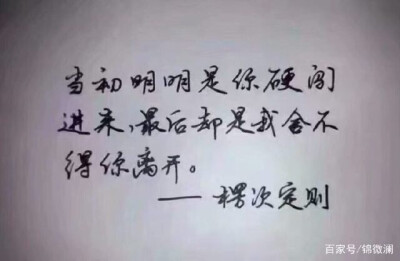 当初明明是你硬闯
进来,最后却是我舍不
得你离开。
——楞次定则
百家号/锦微澜